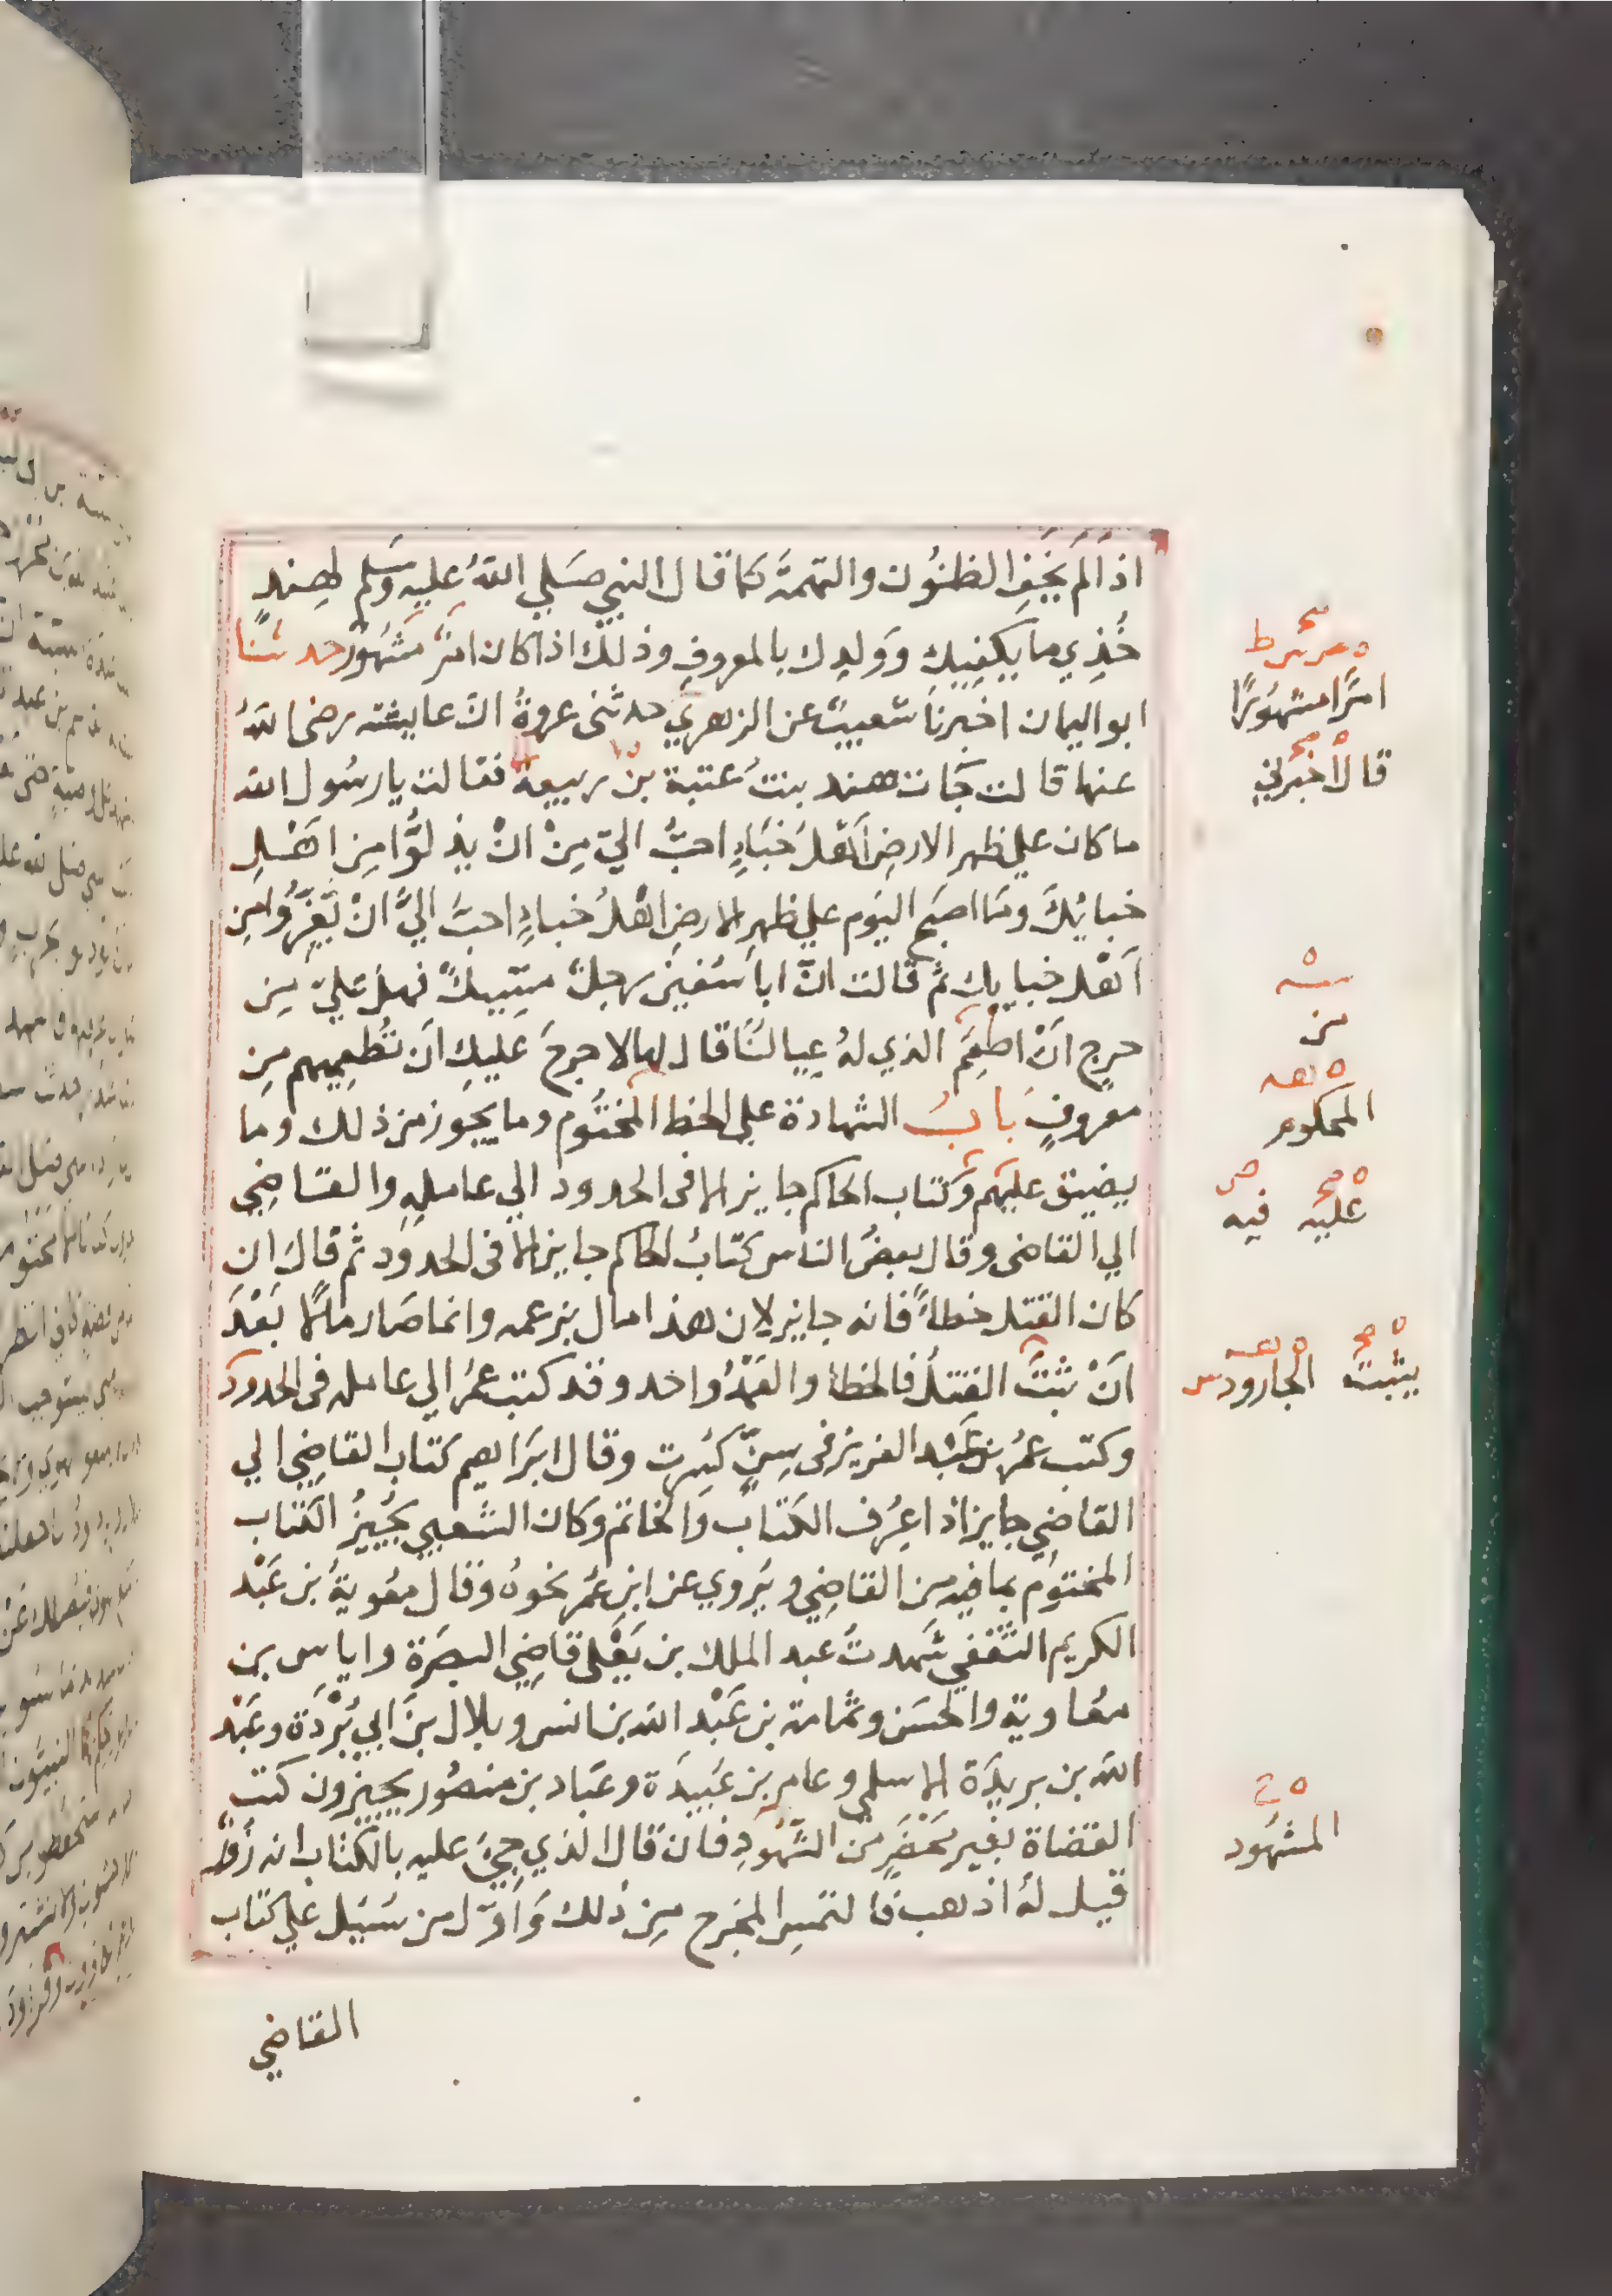 اذا لم يَخَفِ الظنُون والتهمَة كما قال النبي صَلي اللهُ عليه وسَلم لهِندٍ
خُذِي ما يكفِيكِ وَوَلدِك بالمعروفِ وذلك اذا كان امرٌ مَشهُورٌ حدثنا
ابو اليمان اخبرنا شعيبٌ عن الزهري حدثنى عروةُ انّ عايشة رضى اللهُ
عنها قالت جَات هند بنتُ عتبة بن ربيعة فقالت يا رسُول الله
ما كان علي ظهر الارضِ اَهْلُ خبَاءٍ احبُّ اليّ مِنْ انْ يذلوُّا مِن اهْلِ
خبايكَ ومَا اصبح اليَوم علي ظهرِ الارضِ اهْلُ خباءٍ احبَّ اليَّ انْ يَّعِزُّوا مِن
اَهْل خبايك ثم قالت انّ ابا سُفين رجلٌ مسّيكٌ فهل عَليّ مِن
حرج انْ اطعِمَ الذي لهُ عِيالنَا قال لها لا حرجَ عليكِ اَن تُطعِميهم مِن
معروفٍ بابُ الشهادة على الخط المختُوم وما يجوز من ذلك وما
يضيق عليهم وكتاب الحاكم جايز الا فى الحدود الي عاملِهِ والقاضِي
الي القاضى وقال بعضُ الناس كتابُ الحاكم جايز الا فى الحدود ثم قال ان
كان القتل خطاءً فانه جايز لان هذا مال بزعمه وانما صَار مالًا بَعْدَ
انْ ثبَتَ القتلُ فالخطا والعَمْدُ واحد وقد كتب عمَرُ الي عامله فى الحدود
وكتب عمَرُ بن عَبْد العزيز فى سِنٍّ كسُرت وقال ابرَاهيم كتابُ القاضِي الي
القاضِي جايز اذا عِرُف الكتاب والخاتم وكان الشعبي يُجيزُ الكتاب
المختوُم بما فيه من القاضِي ويُروي عن ابنِ عُمر نحوهُ وقال معُوية بن عَبْد
الكريم الثقفي شهدتُ عبد الملك بن يَعْلى قاضِي البصَرة واياس بن
معُاوية والحسَن وثمامة بن عَبْد الله بن انس وبلال بن ابي بُرْدَة وعَبْد
الله بن بريدَة الاسلمي وعامر بن عَبيدَة وعَباد بن منصُور يجيزون كتب
القضاة بغير محَضَرٍ من الشهُودِ فان قال الذي جِيَ عليه بالكتاب انه زُورٌ
قيل لهُ اذهب فالتمسِ المخرج مِن ذلك وَاوّل من سَيَل علي كتاب
القاضي
امرًا مشهُورًا
قال اخبرني
من
المحكوم
عليه فيه
يثبت الجارود
المشهُود